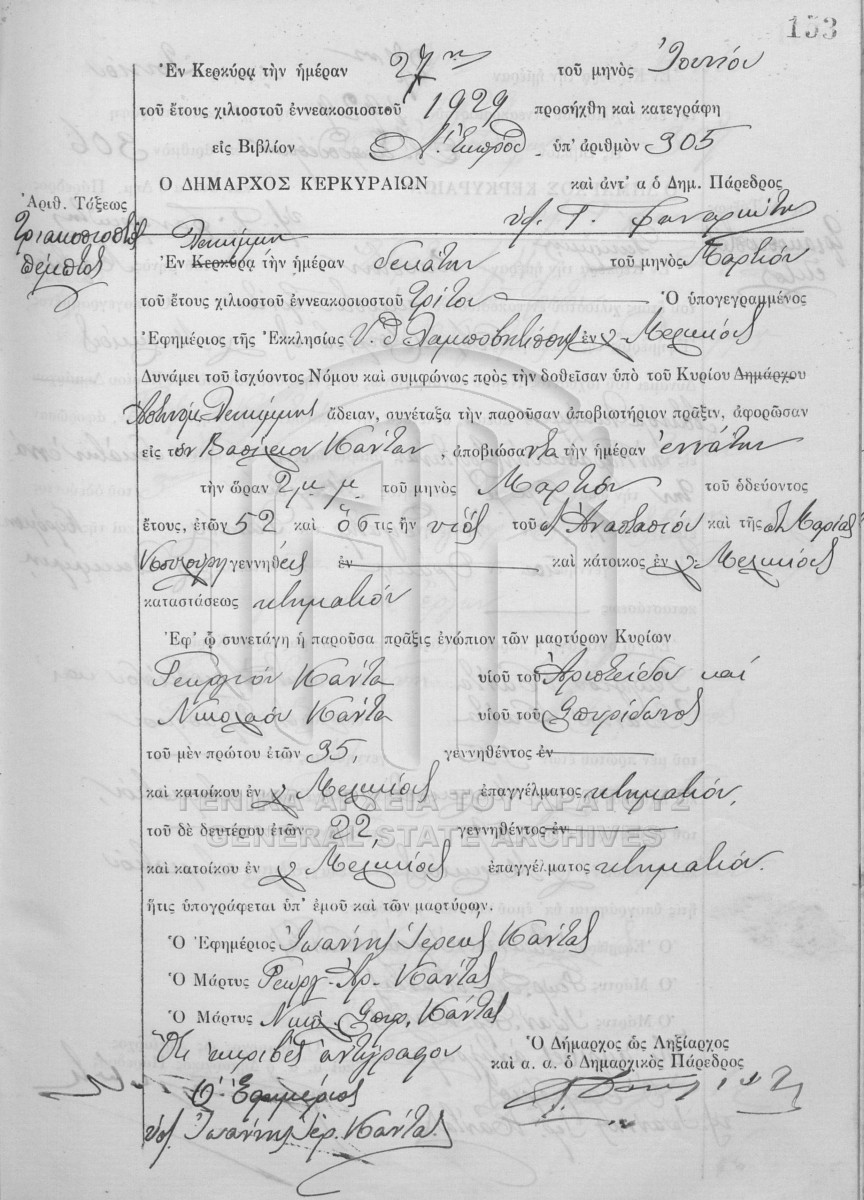 153
Ἐν Κερκύρᾳ τὴν ἡμέραν 27ην τοῦ μηνὸς Ἰουνίου
τοῦ ἔτους χιλιοστοῦ ἐννεακοσιοστοῦ 1929 προσήχθη καὶ κατεγράφη
εἰς Βιβλίον ὑπ' ἀριθμὸν 305
Ο ΔΗΜΑΡΧΟΣ ΚΕΡΚΥΡΑΙΩΝ καὶ ἀντ' α ὁ Δημ. Πάρεδρος
Ἀριθ. Τάξεως
Τριακοσιοστὸς
πέμπτος
Ἐν Κερκύρᾳ τὴν ἡμέραν δεκάτην τοῦ μηνὸς Μαρτίου
τοῦ ἔτους χιλιοστοῦ ἐννεακοσιοστοῦ τρίτου Ὁ ὑπογεγραμμένος
Ἐφημέριος τῆς Ἐκκλησίας ἐν
Δυνάμει τοῦ ἰσχύοντος Νόμου καὶ συμφώνως πρὸς τὴν δοθεῖσαν ὑπὸ τοῦ Κυρίου Δημάρχου
ἄδειαν, συνέταξα τὴν παροῦσαν ἀποβιωτήριον πρᾶξιν, ἀφορῶσαν
εἰς τὸν Βασίλειον Κάνταν, ἀποβιώσαντα τὴν ἡμέραν ἐννάτην
τὴν ὥραν 2 μ.μ. τοῦ μηνὸς Μαρτίου τοῦ ὁδεύοντος
ἔτους, ἐτῶν 52 καὶ ὅστις ἦν υἱὸς τοῦ Ἀναστασίου καὶ τῆς Μαρίας
γεννηθεὶς ἐν καὶ κάτοικος ἐν
καταστάσεως κτηματίου
Ἐφ' ᾧ συνετάγη ἡ παροῦσα πρᾶξις ἐνώπιον τῶν μαρτύρων Κυρίων
Γεωργίου Κάντα υἱοῦ τοῦ Ἀριστείδου καὶ
Νικολάου Κάντα υἱοῦ τοῦ Σπυρίδωνος
τοῦ μὲν πρώτου ἐτῶν 35, γεννηθέντος ἐν
καὶ κατοίκου ἐν ἐπαγγέλματος κτηματίου,
τοῦ δὲ δευτέρου ἐτῶν 22, γεννηθέντος ἐν
καὶ κατοίκου ἐν ἐπαγγέλματος κτηματίου.
ἥτις ὑπογράφεται ὑπ' ἐμοῦ καὶ τῶν μαρτύρων.
Ὁ Ἐφημέριος Ἰωάννης Ἱερεὺς Κάντας
Ὁ Μάρτυς Γεωργ. Ἀρ. Κάντας
Ὁ Μάρτυς Νικ. Σπυρ. Κάντας
Ὅτι ἀκριβὲς ἀντίγραφον
Ὁ Ἐφημέριος
υφ. Ἰωάννης Ἱερ. Κάντας
Ὁ Δήμαρχος ὡς Ληξίαρχος
καὶ α. α. ὁ Δημαρχικὸς Πάρεδρος
ΓΕΝΙΚΑ ΑΡΧΕΙΑ ΤΟΥ ΚΡΑΤΟΥΣ
GENERAL STATE ARCHIVES